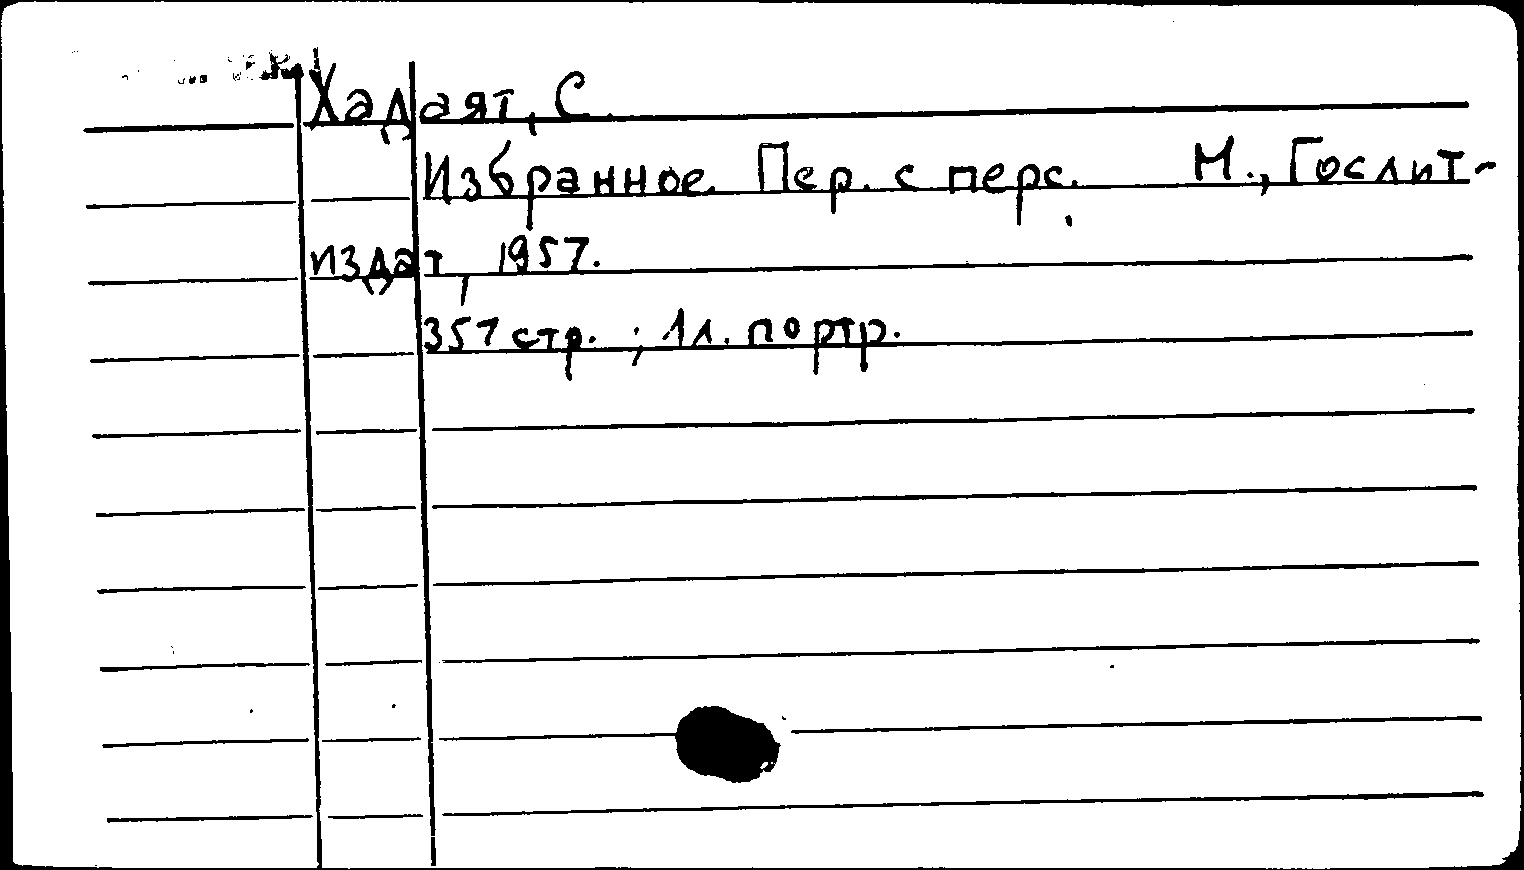 Хадаят, С.
Избранное. Пер. с перс. М., Гослит-
издат, 1957.
357 стр. ; 1 л. портр.